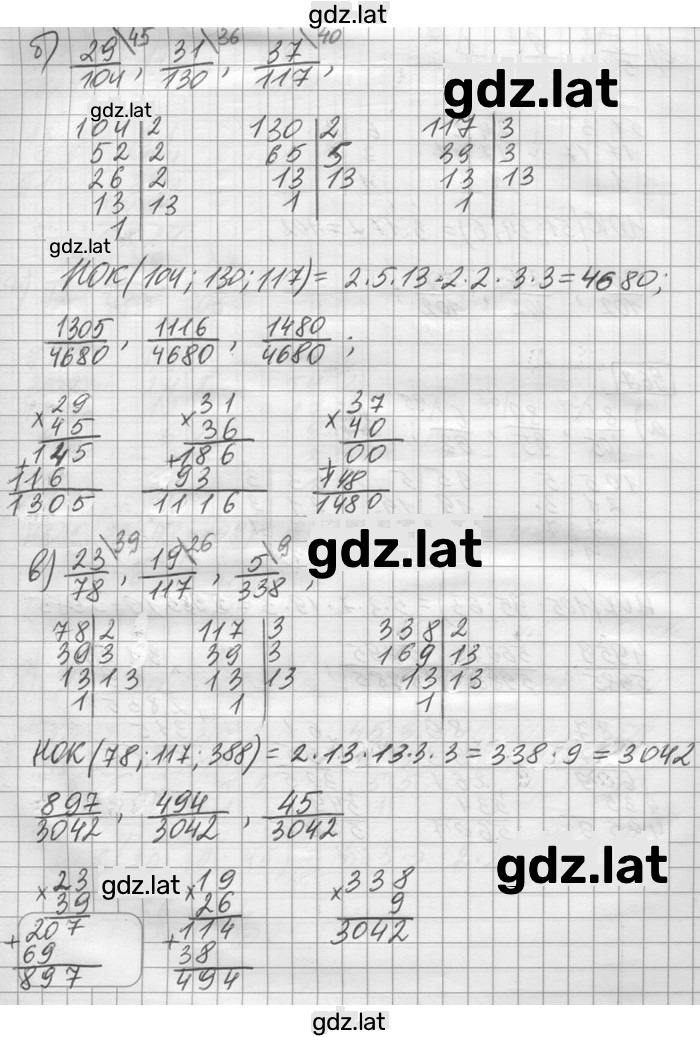 gdz.lat
б) 29/104 \45, 31/130 \36, 37/117 \40,
gdz.lat
gdz.lat
104|2 130|2 117|3
52|2 65|5 39|3
26|2 13|13 13|13
13|13 1 1
1
gdz.lat
НОК(104; 130; 117) = 2·5·13·2·2·3·3=4680;
1305/4680, 1116/4680, 1480/4680;
×29 ×31 ×37
45 36 40
+145 +186 +00
116 93 148
1305 1116 1480
gdz.lat
в) 23/78 \39, 19/117 \26, 5/338 \9,
78|2 117|3 338|2
39|3 39|3 169|13
13|13 13|13 13|13
1 1 1
НОК(78; 117; 388) = 2·13·13·3·3=338·9=3042
897/3042, 494/3042, 45/3042
gdz.lat
gdz.lat
×23 ×19 ×338
39 26 9
+207 +114 3042
69 38
897 494
gdz.lat